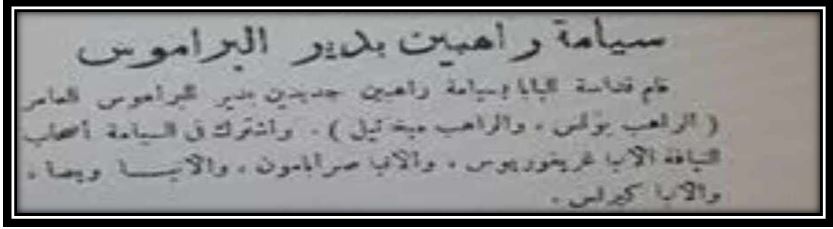 سيامة راهبين بدير البراموس
قام قداسة البابا بسيامة راهبين جديدين بدير البراموس العامر
( الراهب بولس ، والراهب ميخائيل ) . واشترك فى السيامة أصحاب
النيافة الأنبا غريغوريوس ، والأنبا صرابامون ، والأنبا ويصا ،
والأنبا كيرلس .